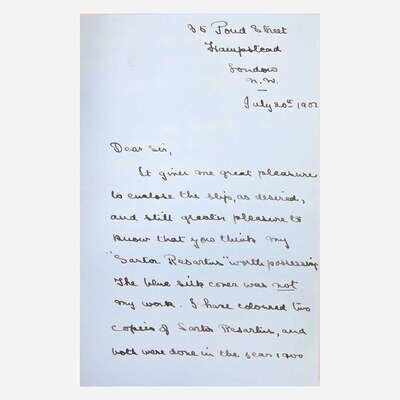 35 Pond Street
Hampstead
London
N.W.
July 20th 1902
Dear Sir,
It gives me great pleasure
to enclose the slip, as desired,
and still greater pleasure to
know that you think my
"Sartor Resartus" worth possessing
The blue silk cover was not
my work. I have coloured two
copies of Sartor Resartus, and
both were done in the year 1900